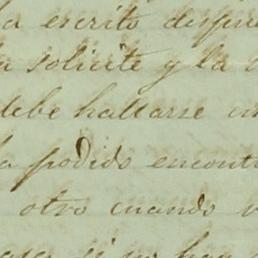 a escrito despue
a solicite y la
debe hallarse en
a podido encont
otro cuando
si no hay